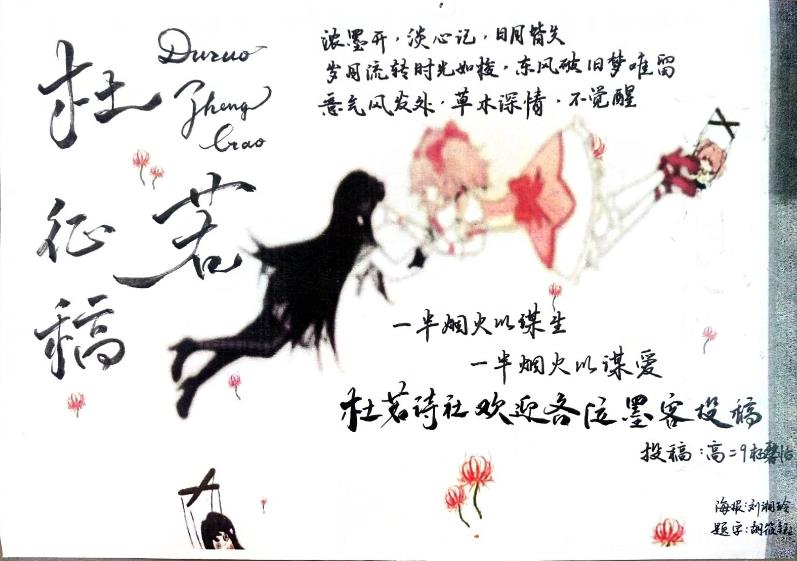 杜若
征稿
Duruo
Zheng
Gao
浓墨开，淡心记，日月皆失
岁月流转时光如梭，东风破旧梦唯留
意气风发处，草木深情，不觉醒
一半烟火以谋生
一半烟火以谋爱
杜若诗社欢迎各位墨客投稿
投稿：高二9杜馨怡
海报:刘湘玲
题字:胡筱钰